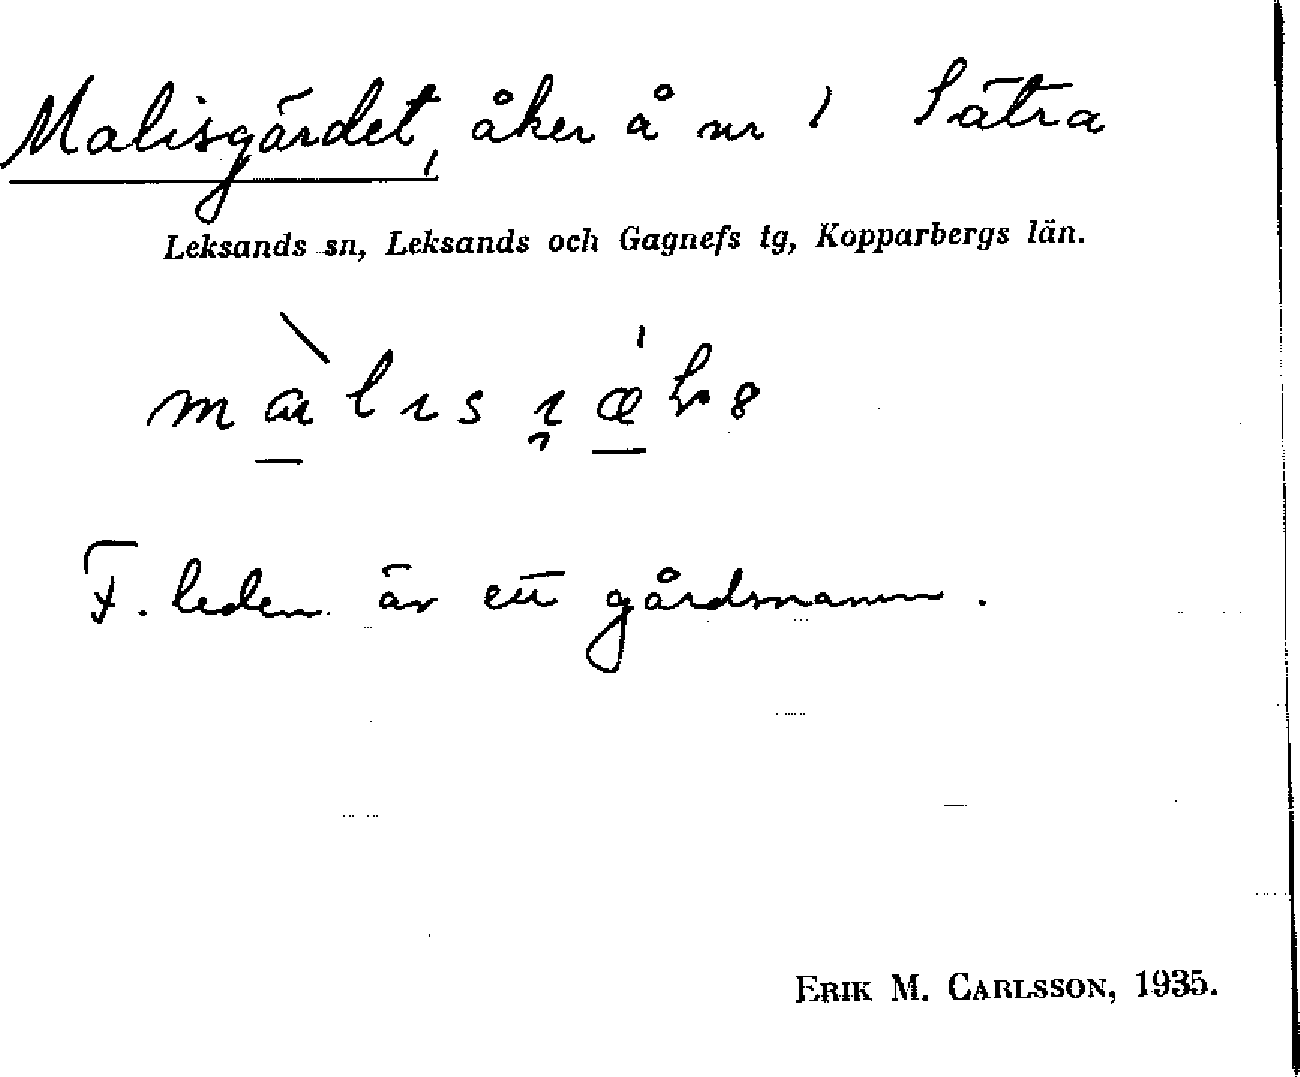 Malisgärdet, åker å nr 1 Sätra
Leksands sn, Leksands och Gagnefs tg, Kopparbergs län.
F. leden är ett gårdsnamn.
ERIK M. CARLSSON, 1935.